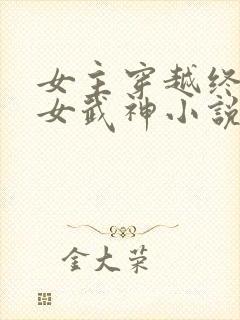 女主穿越终
女武神小説
金大荣